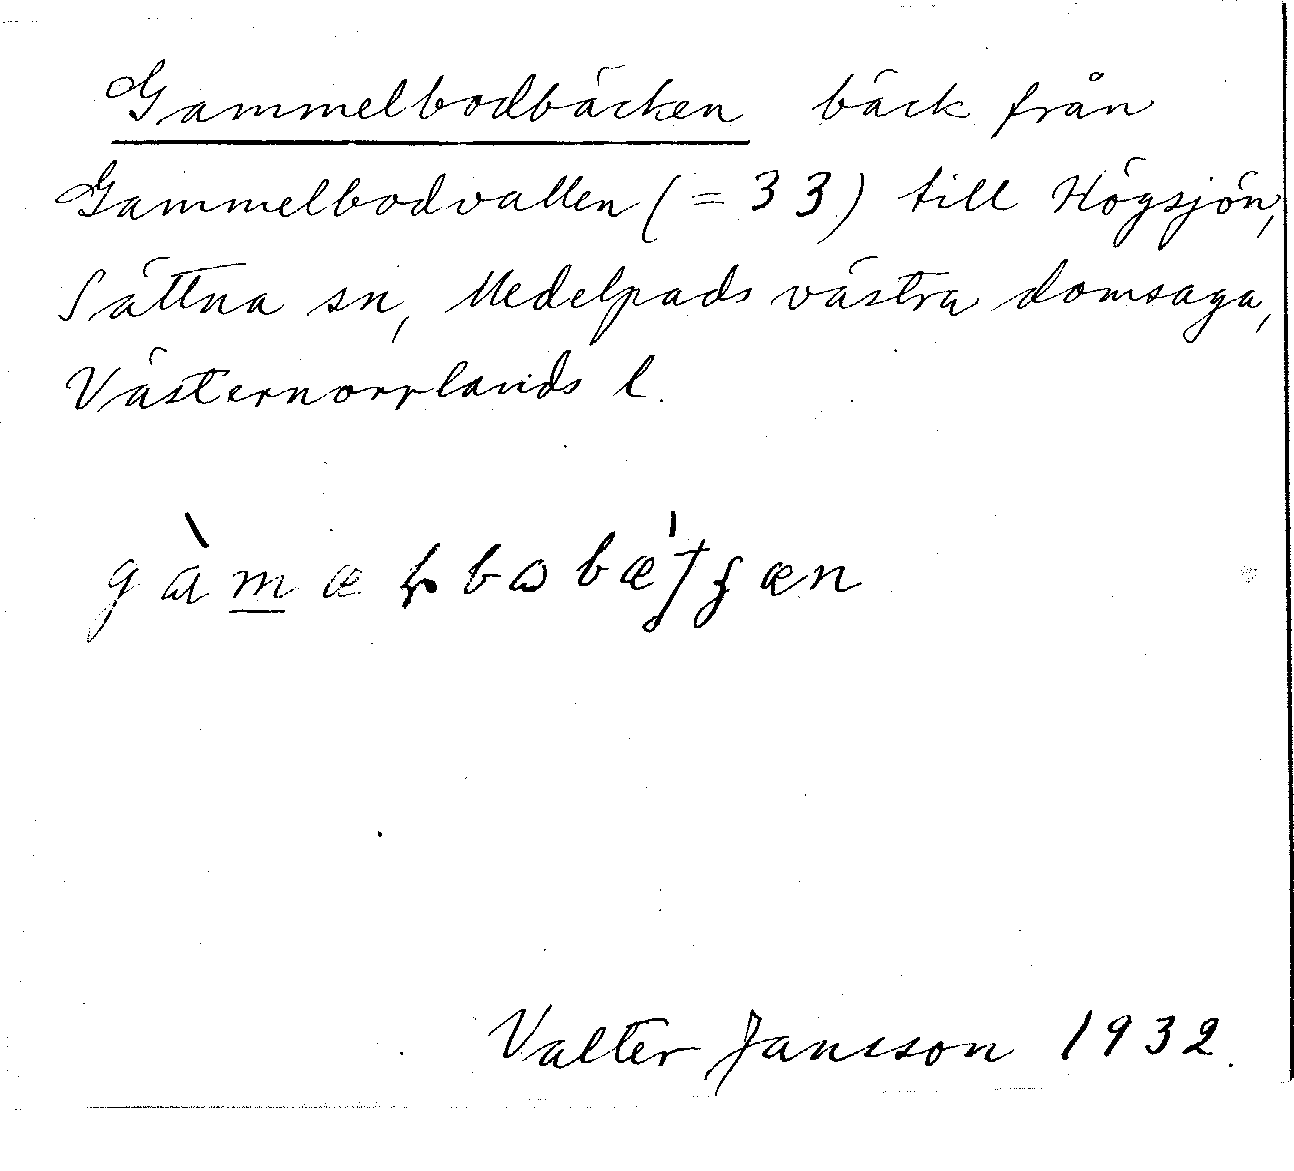 Gammelbodbäcken bäck från
Gammelbodvallen (= 33) till Högsjön,
Sättna sn, Medelpads västra domsaga,
Västernorrlands l.
Valter Jansson 1932.